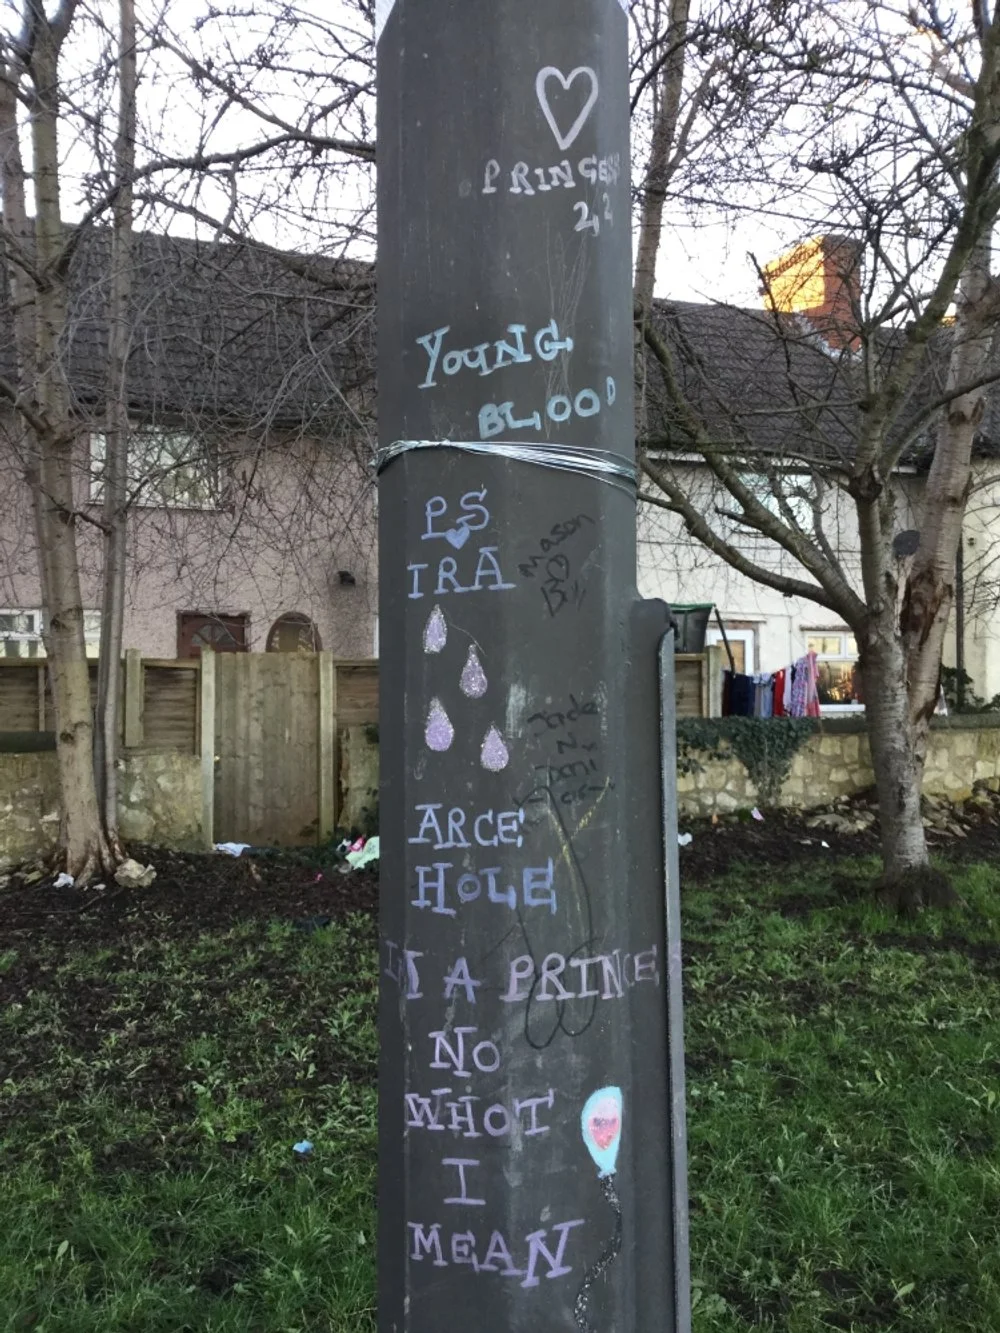 PRINCESS
22
YOUNG
BLOOD
PS
IRA
Mason
Jade
N
ARCE
HOLE
IM A PRINCE
NO
WHOT
I
MEAN